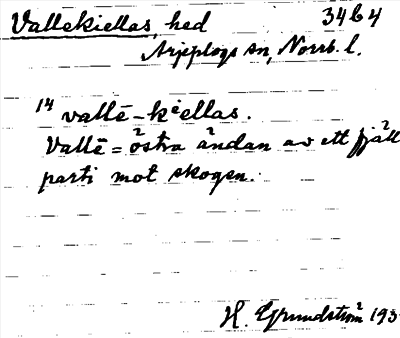 Vallekiellas, hed 34b4
Arjeplogs sn, Norrb. l.
14 vallē-kiellas.
Vallē = östra ändan av ett fjäll
parti mot skogen.
H. Grundström 193